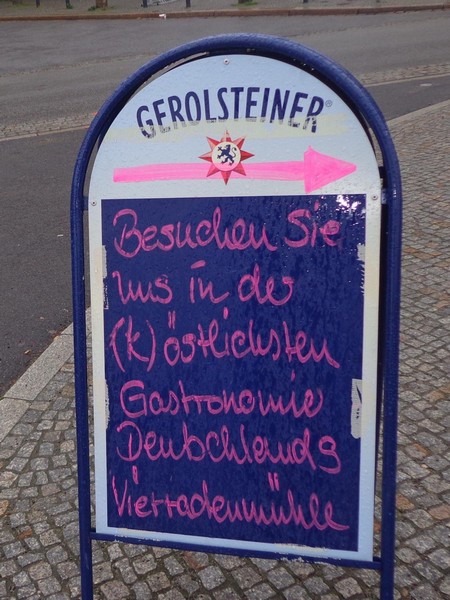 GEROLSTEINER®
Besuchen Sie
uns in der
(k)östlichsten
Gastronomie
Deutschlands
Vierradenmühle